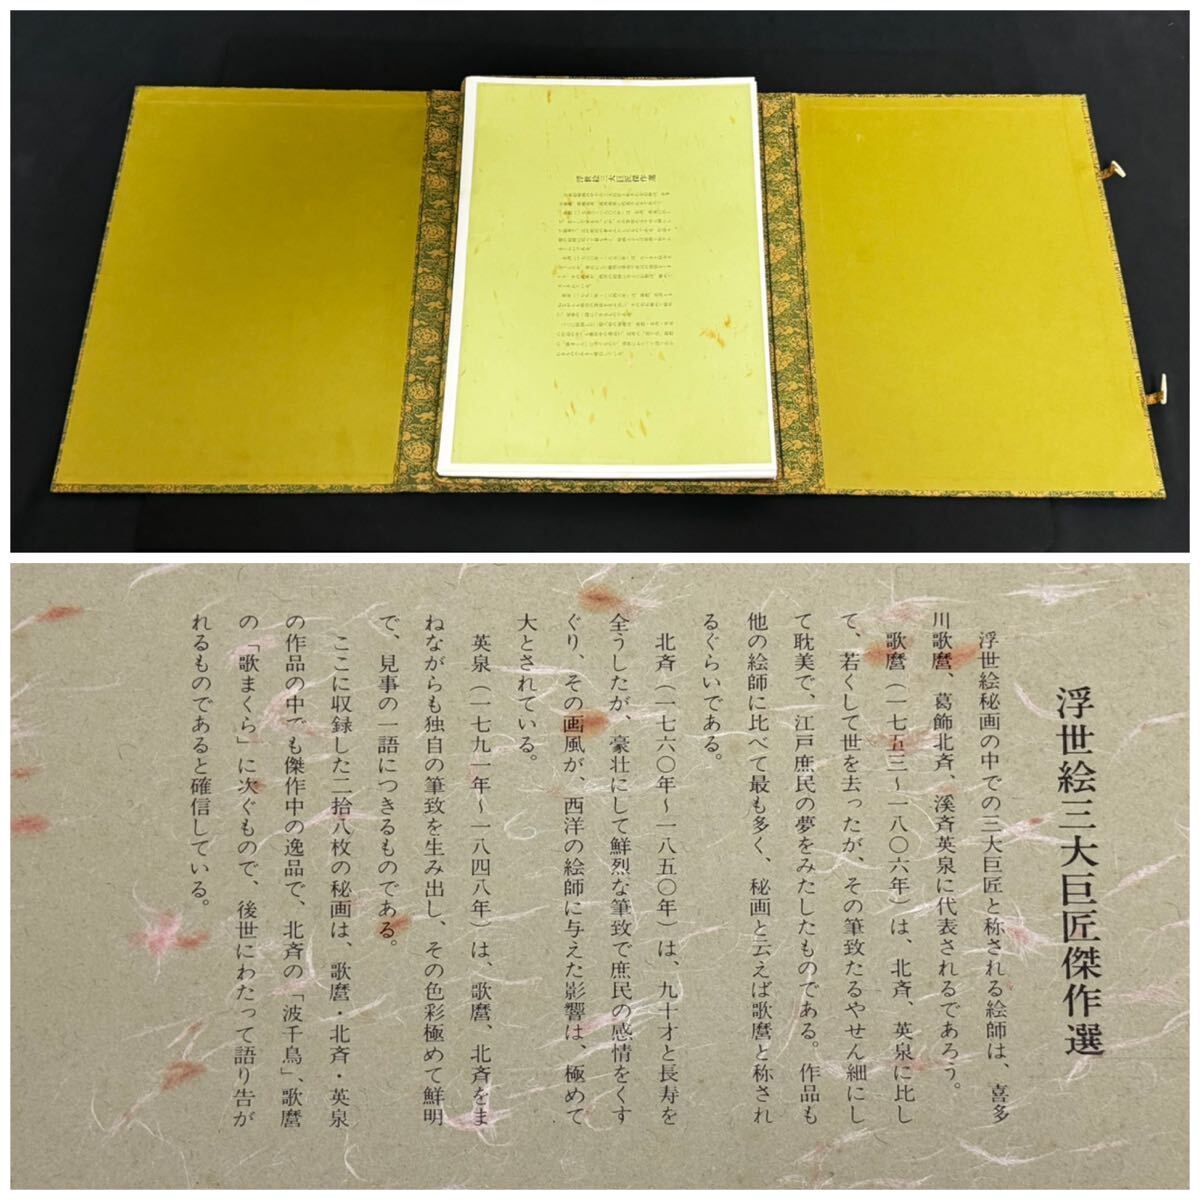 浮世絵三大巨匠傑作選
浮世絵三大巨匠傑作選
浮世絵秘画の中での三大巨匠と称される絵師は、喜多
川歌麿、葛飾北斉、溪斉英泉に代表されるであろう。
歌麿（一七五三〜一八〇六年）は、北斉、英泉に比し
て、若くして世を去ったが、その筆致たるやせん細にし
て耽美で、江戸庶民の夢をみたしたものである。作品も
他の絵師に比べて最も多く、秘画と云えば歌麿と称され
るぐらいである。
北斉（一七六〇年〜一八五〇年）は、九十才と長寿を
全うしたが、豪壮にして鮮烈な筆致で庶民の感情をくす
ぐり、その画風が、西洋の絵師に与えた影響は、極めて
大とされている。
英泉（一七九一年〜一八四八年）は、歌麿、北斉をま
ねながらも独自の筆致を生み出し、その色彩極めて鮮明
で、見事の一語につきるものである。
ここに収録した二拾八枚の秘画は、歌麿・北斉・英泉
の作品の中でも傑作中の逸品で、北斉の「波千鳥」、歌麿
の「歌まくら」に次ぐもので、後世にわたって語り告が
れるものであると確信している。